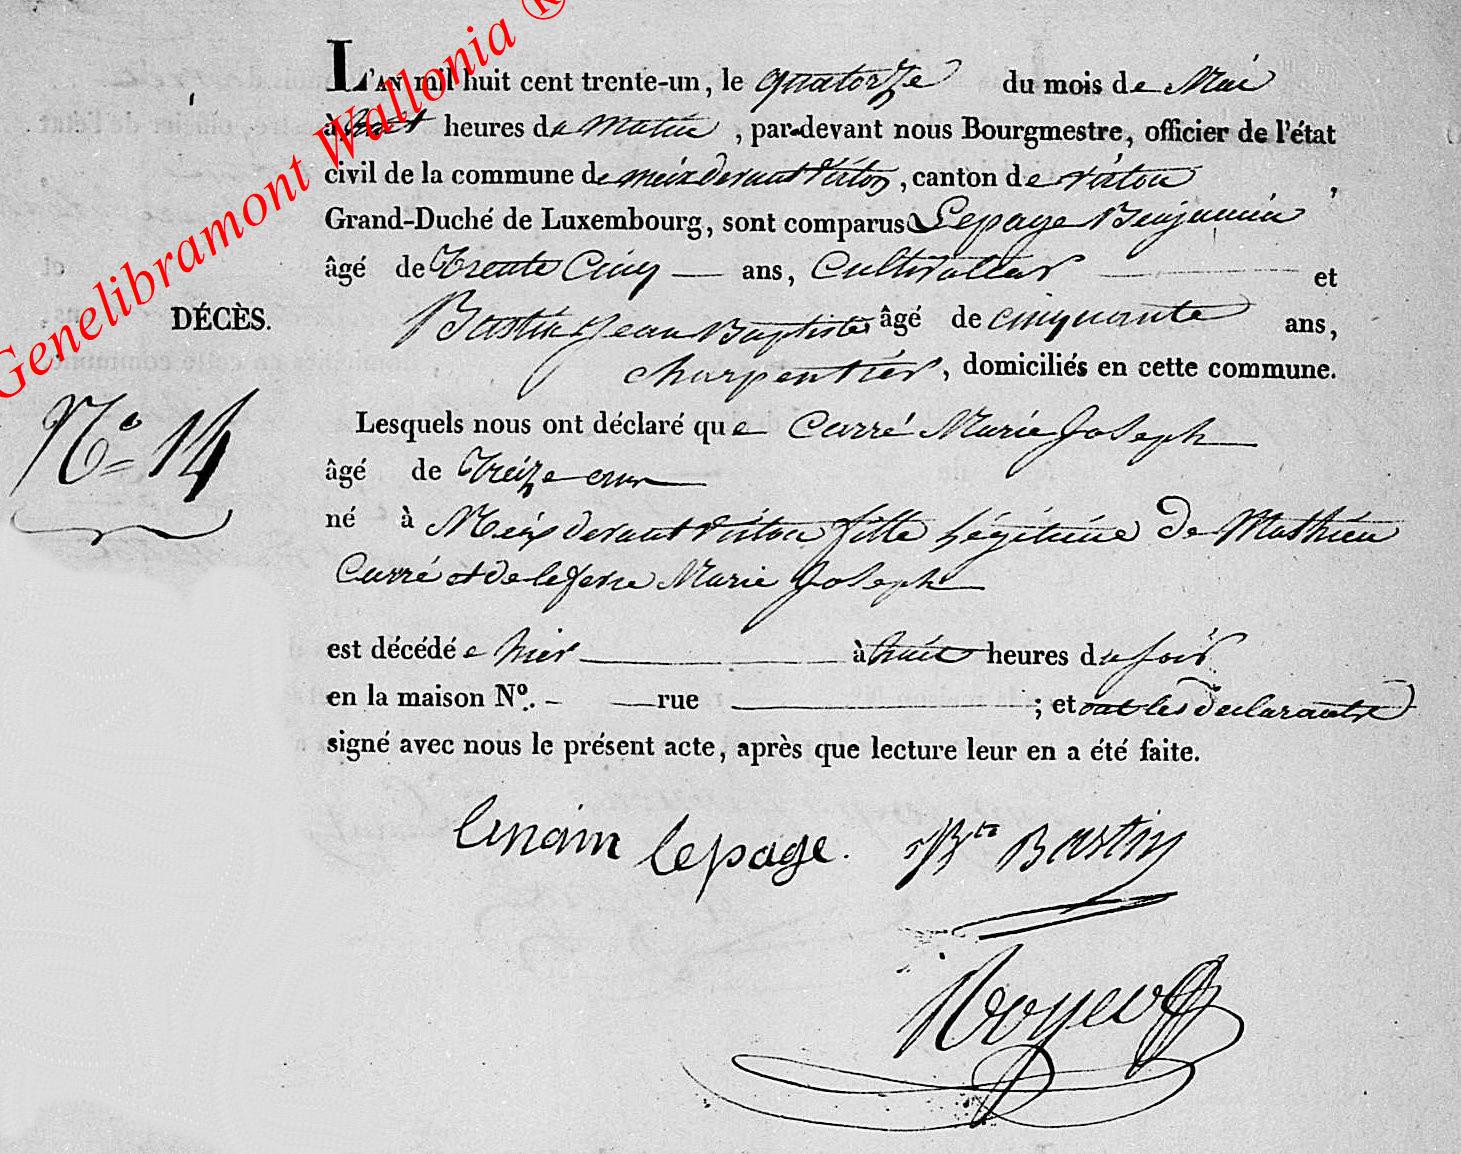 Genelibramont Wallonia ®
L'AN mil huit cent trente-un, le quatorze du mois de Mai
à huit heures du matin, par-devant nous Bourgmestre, officier de l'état
civil de la commune de meix devant Virton, canton de virton,
Grand-Duché de Luxembourg, sont comparus Lepage Benjamin
âgé de Trente Cinq — ans, Cultivateur — et
DÉCÈS.
Bastin Jean Baptiste âgé de cinquante ans,
charpentier, domiciliés en cette commune.
N° 14
Lesquels nous ont déclaré que Carré Marie Joseph
âgé de Treize ans
né à Meix devant Virton fille légitime de Mathieu
Carré et de Marie Joseph
est décédée hier — à huit heures du soir
en la maison N°. - — rue — ; et ont les déclarants
signé avec nous le présent acte, après que lecture leur en a été faite.
lepage. Bastin